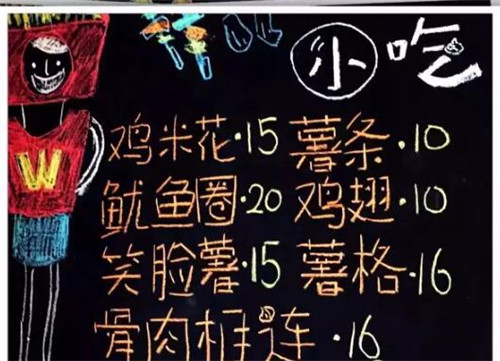 小吃
鸡米花·15 薯条·10
鱿鱼圈·20 鸡翅·10
笑脸薯·15 薯格·16
骨肉相连·16
W